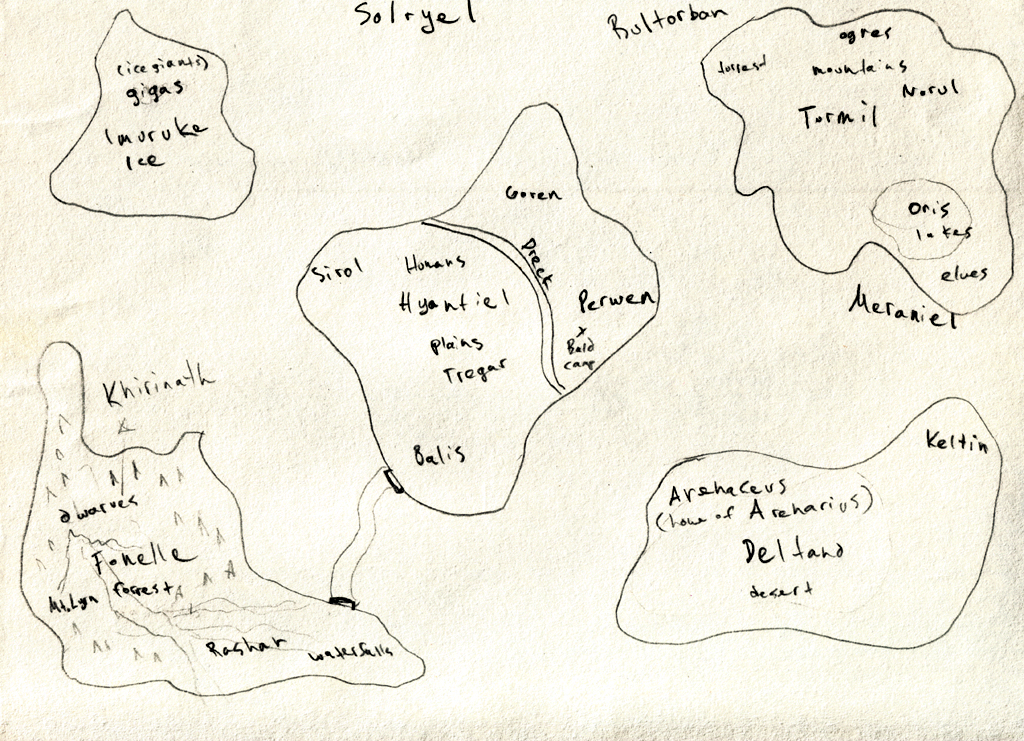 Solryel
Bultorban
(ice giants)
gigas
Imuruke
Ice
ogres
forrest
mountains
Norul
Tormil
Oris
lakes
elves
Meraniel
Goren
Dreek
Sirol
Humans
Hyantiel
plains
Tregar
Perwen
x
Bald
camp
Balis
Khirinath
dwarves
Fonelle
forrest
Mt. Lyrn
Rashar
waterfalls
Keltin
Arehaceus
(home of Areharius)
Deltand
desert